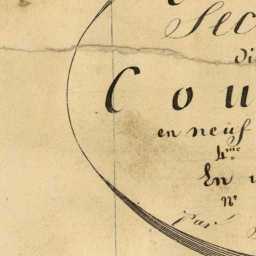 Sec
di
Cou
en neuf
4me
En
No
Par